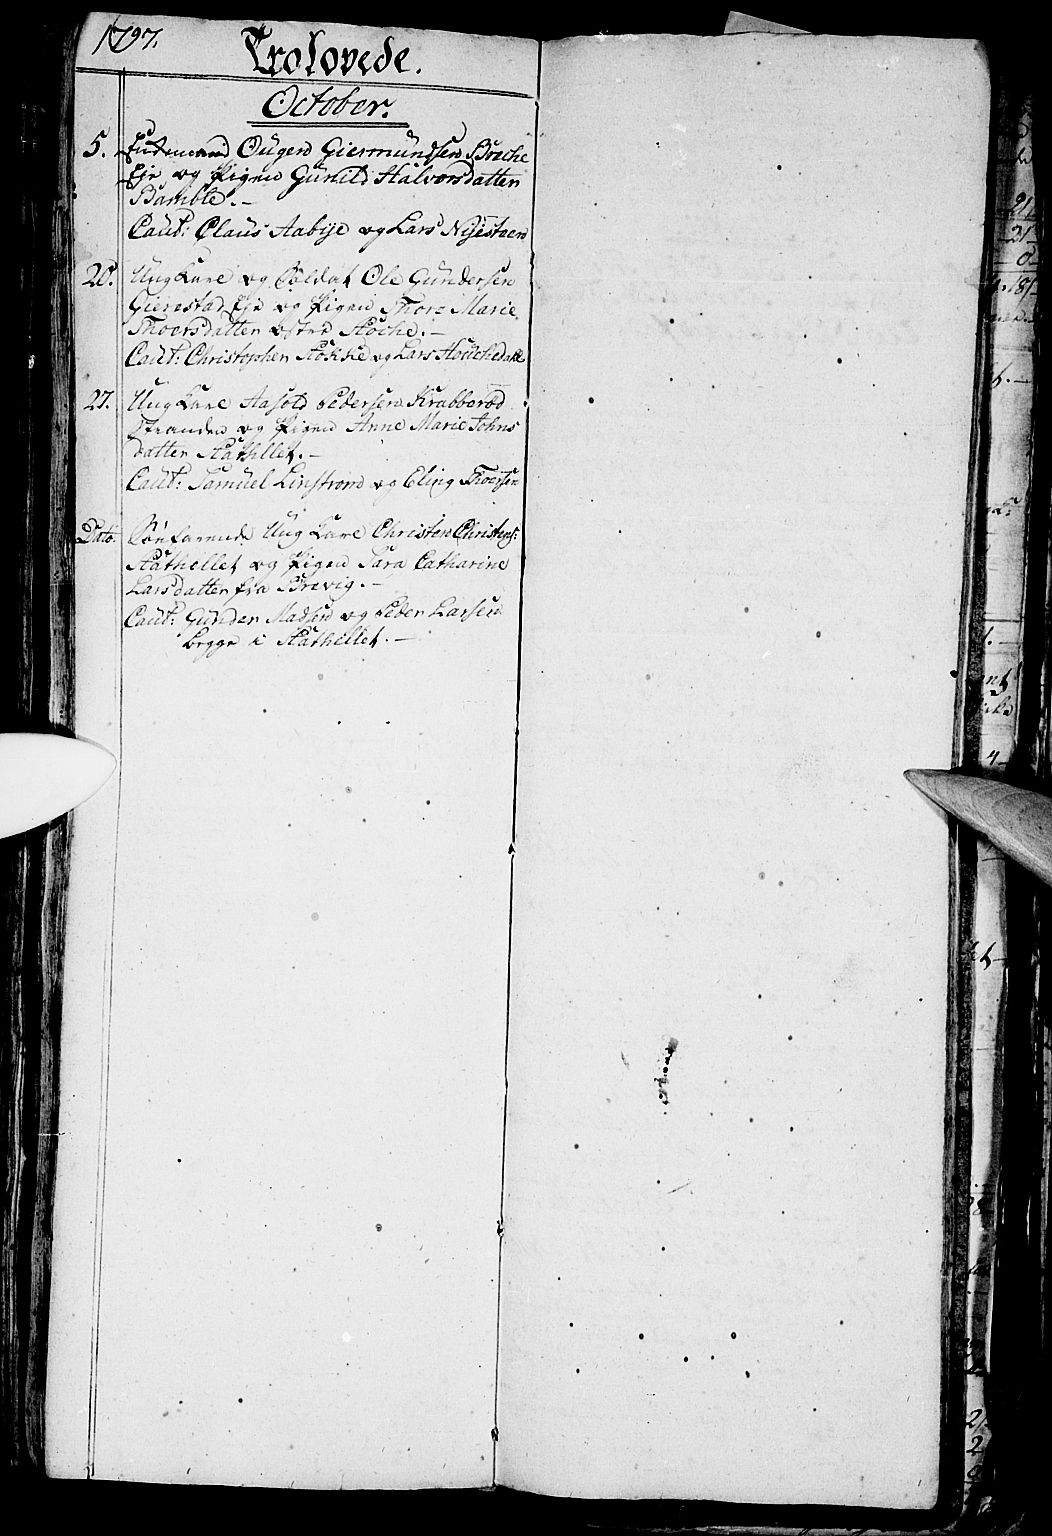 1797.
Trolovede.
October.
5. Enkemand Ougen Giermundsen Brache
Eje og Pigen Gunild Halvorsdatter
Bamble. -
Caut: Claus Aabÿe og Lars Nÿestaen
20. Ung Karl og Soldat Ole Gundersen
Gierestad Eje og Pigen Thore Marie
Thoersdatter østre Aache. -
Caut: Christopher Aokke og Lars Houchedall
27. Ung Karl Aasold Pedersen Krabberød
Stranden og Pigen Anne Marie Johns
datter Aathellet. -
Caut: Samuel Linstrøm og Eling Thoersen
Dato. Søefarende Ung Karl Christen Christens:
Aathellet og Pigen Sara Catharine
Larsdatter fra Brevig. -
Caut: Gunder Madsen og Peder Larsen
begge i Aathellet. -